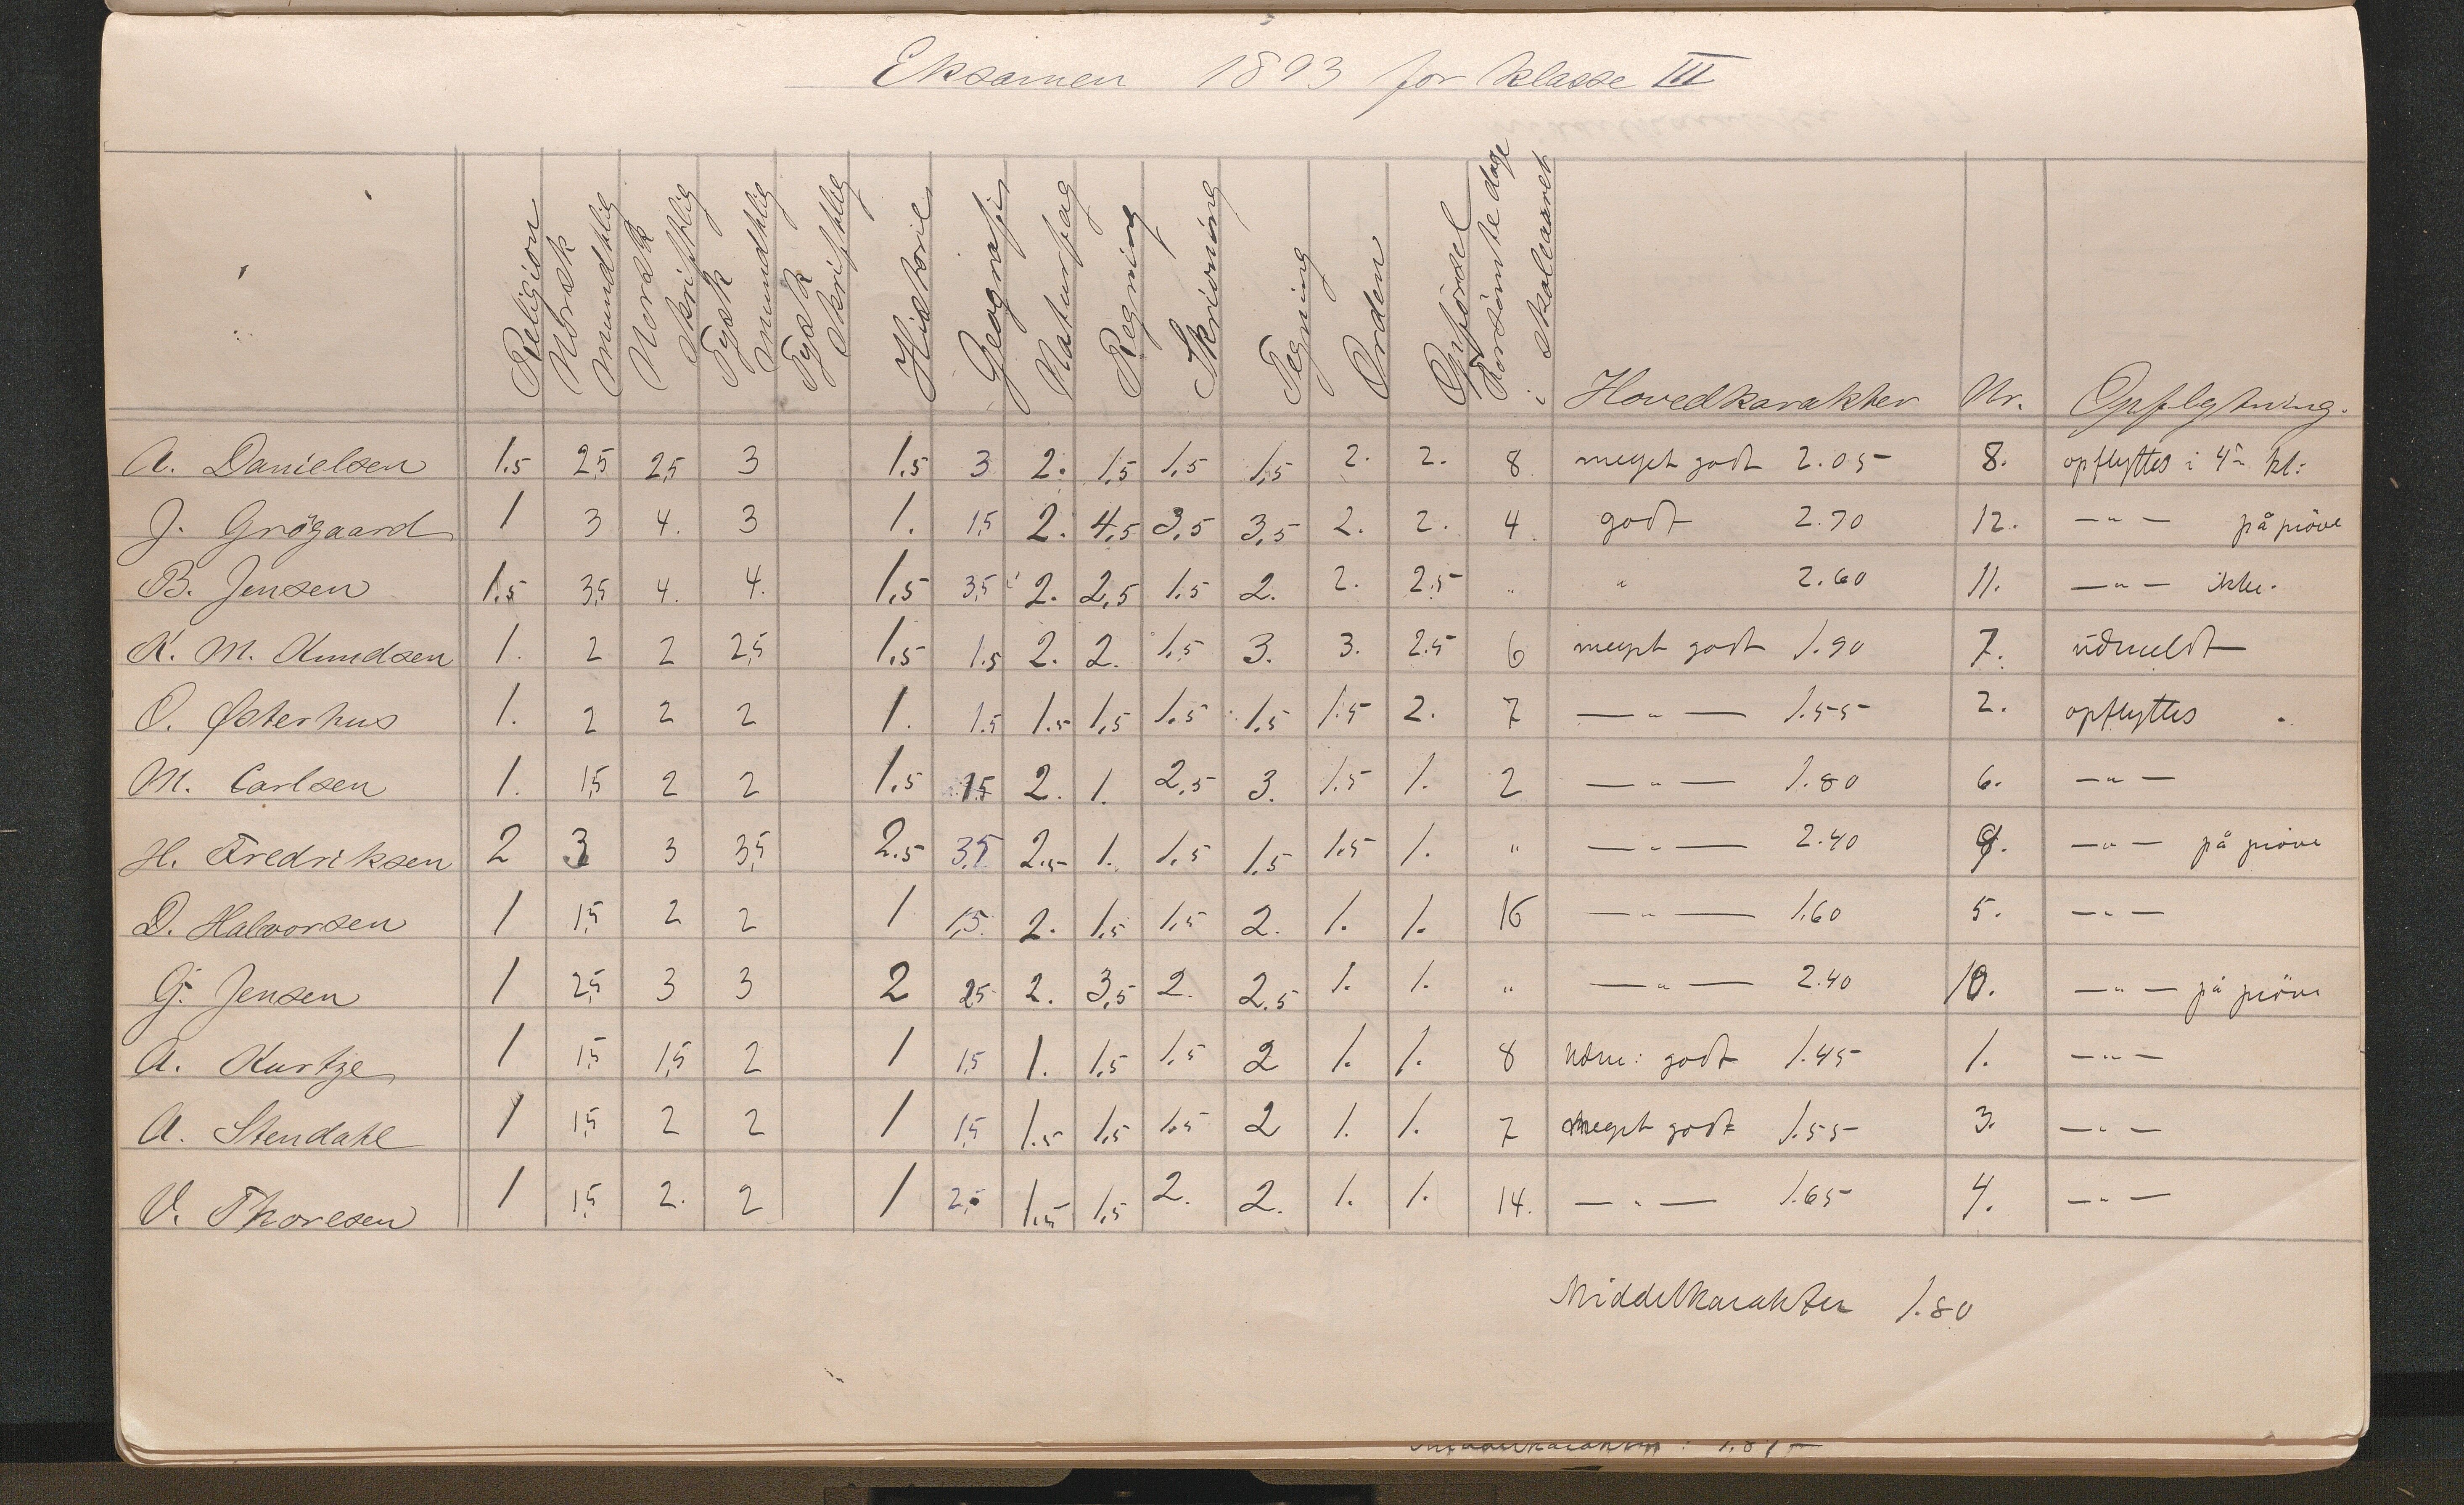 Eksamen 1893 for klasse III
Religion | Norsk mundtlig | Norsk skriftlig | Tysk mundtlig | Tysk skriftlig | Historie | Geografi | Naturfag | Regning | Skrivning | Tegning | Orden | Opförsel | Forsömte dage i skoleaaret | Hovedkarakter | Nr. | Opflytning.
A. Danielsen | 1.5 | 2,5 | 2,5 | 3 | | 1.5 | 3 | 2. | 1,5 | 1.5 | 1,5 | 2. | 2. | 8. | meget godt 2.05 | 8. | opflyttes i 4de kl:
J. Grögaard | 1 | 3 | 4. | 3 | | 1. | 1,5 | 2. | 4,5 | 3,5 | 3,5 | 2. | 2. | 4. | godt 2.70 | 12. | —"— på pröve
B. Jensen | 1.5 | 3,5 | 4. | 4. | | 1,5 | 3,5 | 2. | 2,5 | 1.5 | 2. | 2. | 2.5 | " | " 2.60 | 11. | —"— ikke.
K. M. Knudsen | 1. | 2 | 2 | 2,5 | | 1,5 | 1.5 | 2. | 2. | 1.5 | 3. | 3. | 2.5 | 6 | meget godt 1.90 | 7. | udmeldt
O. Østerhus | 1. | 2 | 2 | 2 | | 1. | 1.5 | 1.5 | 1,5 | 1.5 | 1.5 | 1.5 | 2. | 7 | —"— 1.55 | 2. | opflyttes
M. Carlsen | 1. | 1,5 | 2 | 2 | | 1.5 | 1.5 | 2. | 1. | 2,5 | 3. | 1.5 | 1. | 2 | —"— 1.80 | 6. | —"—
H. Fredriksen | 2 | 3 | 3 | 3,5 | | 2.5 | 3,5 | 2.5 | 1. | 1.5 | 1.5 | 1.5 | 1. | " | —"— 2.40 | 9. | —"— på pröve
D. Halvorsen | 1 | 1,5 | 2 | 2 | | 1 | 1,5. | 2. | 1.5 | 1.5 | 2. | 1. | 1. | 16 | —"— 1.60 | 5. | —"—
G. Jensen | 1 | 2,5 | 3 | 3 | | 2 | 2,5 | 2. | 3,5 | 2. | 2.5 | 1. | 1. | " | —"— 2.40 | 10. | —"— på pröve
A. Kurtze | 1 | 1,5 | 1,5 | 2 | | 1 | 1,5 | 1. | 1.5 | 1.5 | 2 | 1. | 1. | 8 | udm: godt 1.45 | 1. | —"—
A. Stendahl | 1 | 1,5 | 2 | 2 | | 1 | 1,5 | 1.5 | 1.5 | 1.5 | 2 | 1. | 1. | 7 | meget godt 1.55 | 3. | —"—
V. Thoresen | 1 | 1,5 | 2. | 2 | | 1 | 2,5 | 1.5 | 1,5 | 2. | 2. | 1. | 1. | 14. | —"— 1.65 | 4. | —"—
Middelkarakter 1.80